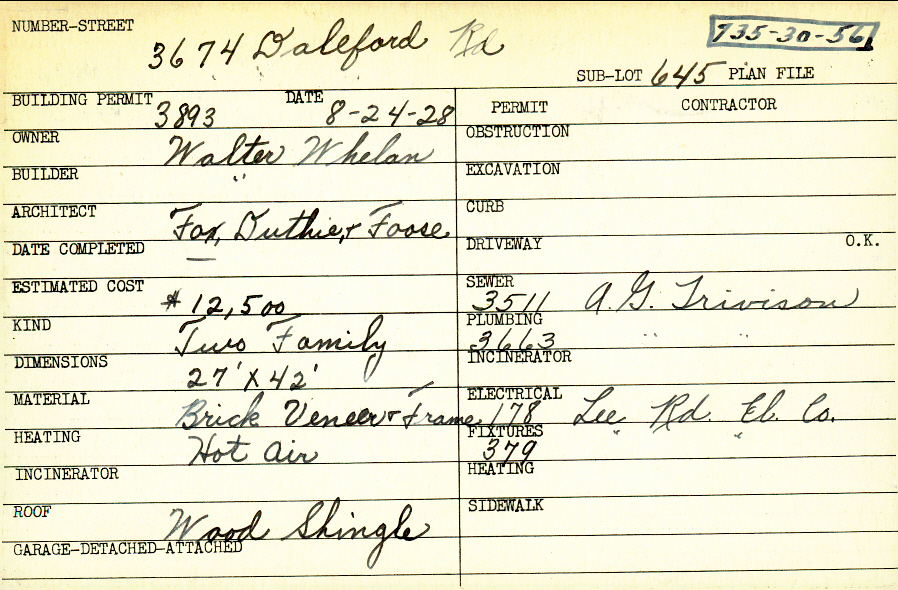 NUMBER-STREET 3674 Daleford Rd 735-30-56
SUB-LOT 645 PLAN FILE
BUILDING PERMIT 3893 DATE 8-24-28
OWNER Walter Whelan
BUILDER "
ARCHITECT Fox, Duthie, & Foose
DATE COMPLETED —
ESTIMATED COST $12,500
KIND Two Family
DIMENSIONS 27' X 42'
MATERIAL Brick Veneer & Frame
HEATING Hot Air
INCINERATOR
ROOF Wood Shingle
GARAGE-DETACHED-ATTACHED
PERMIT CONTRACTOR
OBSTRUCTION
EXCAVATION
CURB
DRIVEWAY O.K.
SEWER 3511 A. G. Trivison
PLUMBING 3663 " "
INCINERATOR
ELECTRICAL 178 Lee Rd. El. Co.
FIXTURES 379 " "
HEATING
SIDEWALK